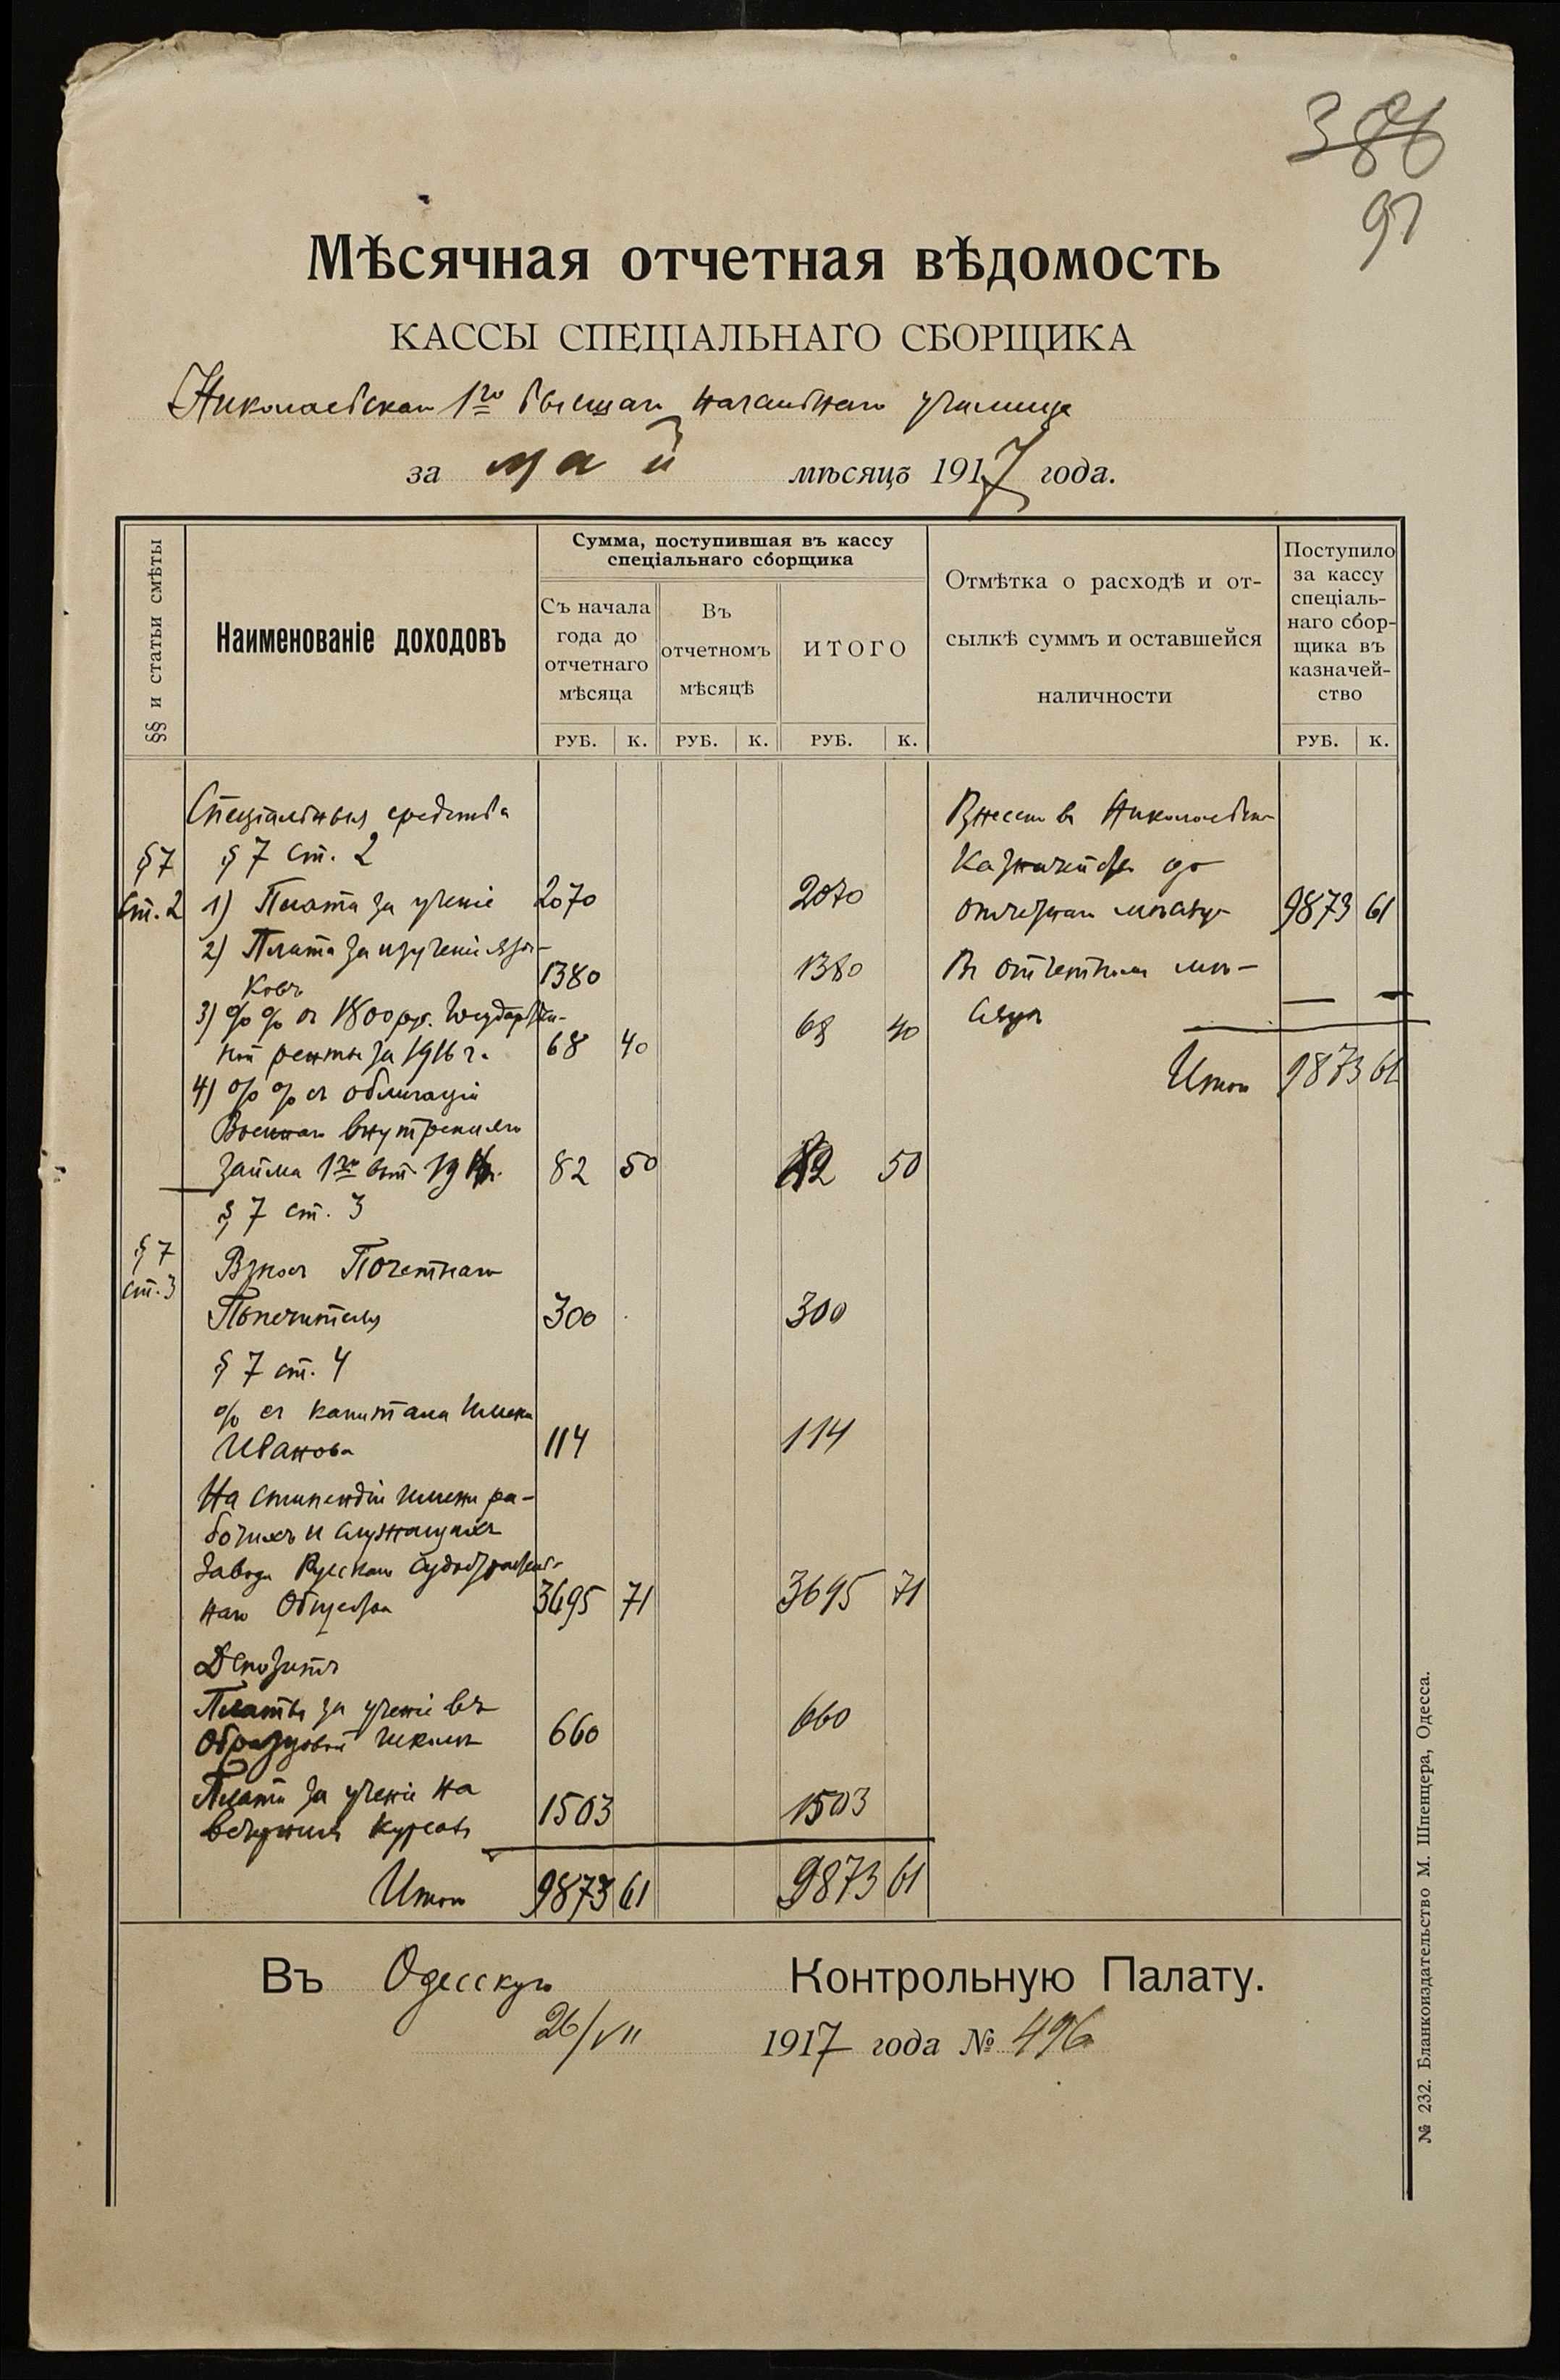 386
97
Мѣсячная отчетная вѣдомость
КАССЫ СПЕЦІАЛЬНАГО СБОРЩИКА
Николаевскаго 1го высшаго начальнаго училища
за май мѣсяцъ 1917 года.
§§ и статьи смѣты
Наименованіе доходовъ
Сумма, поступившая въ кассу
спеціальнаго сборщика
Съ начала
года до
отчетнаго
мѣсяца
Въ
отчетномъ
мѣсяцѣ
ИТОГО
Отмѣтка о расходѣ и от-
сылкѣ суммъ и оставшейся
наличности
Поступило
за кассу
спеціаль-
наго сбор-
щика въ
казначей-
ство
РУБ. К. РУБ. К. РУБ. К. РУБ. К.
Спеціальныя средства
§ 7 § 7 ст. 2
ст. 2 1) Плата за ученіе 2070 2070
2) Плата за изученіе язы-
ковъ 1380 1380
3) % % съ 1800 р. Государствен-
ной ренты за 1916 г. 68 40 68 40
4) % % съ облигацій
Военнаго внутренняго
займа 1го вып. 1916 г. 82 50 82 50
§ 7 ст. 3
§ 7
ст. 3
Взносъ Почетнаго
Попечителя 300 300
§ 7 ст. 4
% съ капитала имени
Иванова 114 114
На стипендіи имени ра-
бочихъ и служащихъ
завода Русскаго Судостроитель-
наго Общества 3695 71 3695 71
Депозитъ
Плата за ученіе въ
Образцовой школѣ 660 660
Плата за ученіе на
вечернихъ курсахъ 1503 1503
Итого 9873 61 9873 61
Внесено въ Николаевское
Казначейство до
отчетнаго мѣсяца 9873 61
Въ отчетномъ мѣ-
сяцѣ — —
Итого 9873 61
Въ Одесскую Контрольную Палату.
26/VII 1917 года № 496
№ 232. Бланкоиздательство М. Шпенцера, Одесса.